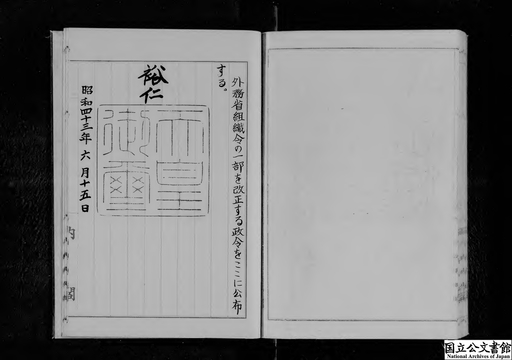 外務省組織令の一部を改正する政令をここに公布
する。
裕仁
天皇
御璽
昭和四十三年六月十五日
内閣
国立公文書館
National Archives of Japan